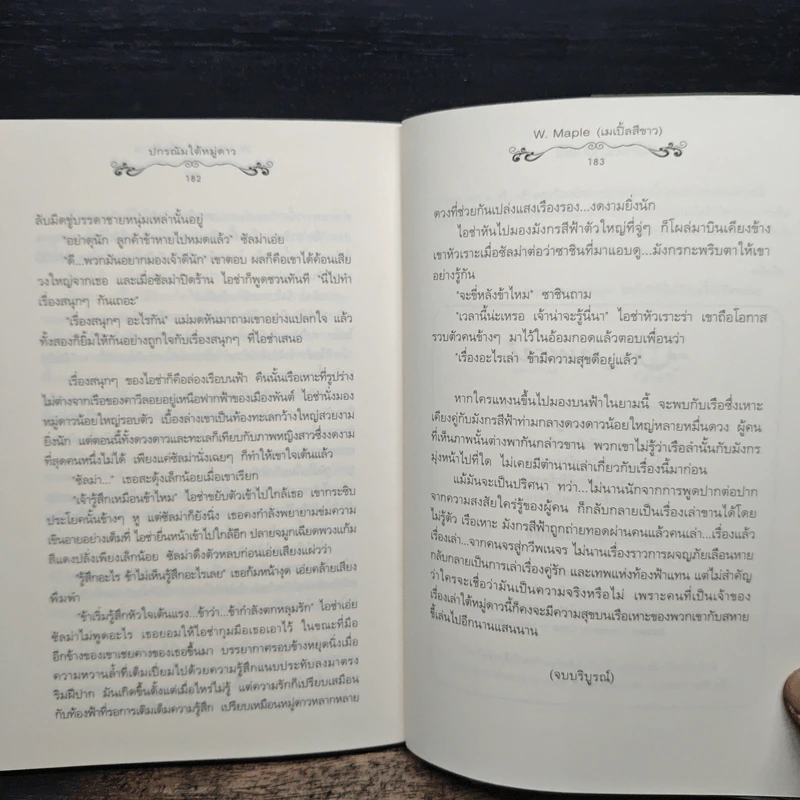 ปกรณัมใต้หมู่ดาว
182
ลับมีดขู่บรรดาชายหนุ่มเหล่านั้นอยู่
"อย่าดุนัก ลูกค้าข้าหายไปหมดแล้ว" ซัลม่าเอ่ย
"ดี...พวกมันอยากมองเจ้าดีนัก" เขาตอบ ผลก็คือเขาได้ค้อนเสีย
วงใหญ่จากเธอ และเมื่อซัลม่าปิดร้าน ไอซ่าก็พูดชวนทันที "นี่ไปทำ
เรื่องสนุกๆ กันเถอะ"
"เรื่องสนุกๆ อะไรกัน" แม่มดหันมาถามเขาอย่างแปลกใจ แล้ว
ทั้งสองก็ยิ้มให้กันอย่างถูกใจกับเรื่องสนุกๆ ที่ไอซ่าเสนอ
เรื่องสนุกๆ ของไอซ่าก็คือล่องเรือบนฟ้า คืนนั้นเรือเหาะที่รูปร่าง
ไม่ต่างจากเรือของคาวีลอยอยู่เหนือฟากฟ้าของเมืองพันต์ ไอซ่านั่งมอง
หมู่ดาวน้อยใหญ่รอบตัว เบื้องล่างเขาเป็นท้องทะเลกว้างใหญ่สวยงาม
ยิ่งนัก แต่ตอนนี้ทั้งดวงดาวและทะเลก็เทียบกับภาพหญิงสาวซึ่งงดงาม
ที่สุดคนหนึ่งไม่ได้ เพียงแค่ซัลม่านั่งเฉยๆ ก็ทำให้เขาใจเต้นแล้ว
"ซัลม่า..." เธอสะดุ้งเล็กน้อยเมื่อเขาเรียก
"เจ้ารู้สึกเหมือนข้าไหม" ไอซ่าขยับตัวเข้าไปใกล้เธอ เขากระซิบ
ประโยคนั้นข้างๆ หู แต่ซัลม่าก็ยังนิ่ง เธอคงกำลังพยายามข่มความ
เขินอายอย่างเต็มที่ ไอซ่ายื่นหน้าเข้าไปใกล้อีก ปลายจมูกเฉียดพวงแก้ม
สีแดงปลั่งเพียงเล็กน้อย ซัลม่าดึงตัวหลบก่อนเอ่ยเสียงแผ่วว่า
"รู้สึกอะไร ข้าไม่เห็นรู้สึกอะไรเลย" เธอก้มหน้างุด เอ่ยคล้ายเสียง
พึมพำ
"ข้าเริ่มรู้สึกหัวใจเต้นแรง...ข้าว่า...ข้ากำลังตกหลุมรัก" ไอซ่าเอ่ย
ซัลม่าไม่พูดอะไร เธอยอมให้ไอซ่ากุมมือเธอเอาไว้ ในขณะที่มือ
อีกข้างของเขาเชยคางของเธอขึ้นมา บรรยากาศรอบข้างหยุดนิ่งเมื่อ
ความหวานล้ำที่เต็มเปี่ยมไปด้วยความรู้สึกแนบประทับลงมาตรง
ริมฝีปาก มันเกิดขึ้นตั้งแต่เมื่อไหร่ไม่รู้ แต่ความรักก็เปรียบเสมือน
กับท้องฟ้าที่รอการเติมเต็มความรู้สึก เปรียบเหมือนหมู่ดาวหลากหลาย
W. Maple (เมเปิ้ลสีขาว)
183
ดวงที่ช่วยกันเปล่งแสงเรืองรอง...งดงามยิ่งนัก
ไอซ่าหันไปมองมังกรสีฟ้าตัวใหญ่ที่จู่ๆ ก็โผล่มาบินเคียงข้าง
เขาหัวเราะเมื่อซัลม่าต่อว่าซาซินที่มาแอบดู...มังกรกะพริบตาให้เขา
อย่างรู้กัน
"จะขี่หลังข้าไหม" ซาซินถาม
"เวลานี้น่ะเหรอ เจ้าน่าจะรู้นี่นา" ไอซ่าหัวเราะร่า เขาถือโอกาส
รวบตัวคนข้างๆ มาไว้ในอ้อมกอดแล้วตอบเพื่อนว่า
"เรื่องอะไรเล่า ข้ามีความสุขดีอยู่แล้ว"
หากใครแหงนขึ้นไปมองบนฟ้าในยามนี้ จะพบกับเรือซึ่งเหาะ
เคียงคู่กับมังกรสีฟ้าท่ามกลางดวงดาวน้อยใหญ่หลายหมื่นดวง ผู้คน
ที่เห็นภาพนั้นต่างพากันกล่าวขาน พวกเขาไม่รู้ว่าเรือลำนั้นกับมังกร
มุ่งหน้าไปที่ใด ไม่เคยมีตำนานเล่าเกี่ยวกับเรื่องนี้มาก่อน
แม้มันจะเป็นปริศนา ทว่า...ไม่นานนักจากการพูดปากต่อปาก
จากความสงสัยใคร่รู้ของผู้คน ก็กลับกลายเป็นเรื่องเล่าขานได้โดย
ไม่รู้ตัว เรือเหาะ มังกรสีฟ้าถูกถ่ายทอดผ่านคนแล้วคนเล่า...เรื่องแล้ว
เรื่องเล่า...จากคนจรสู่กวีพเนจร ไม่นานเรื่องราวการผจญภัยเลือนหาย
กลับกลายเป็นการเล่าเรื่องคู่รัก และเทพแห่งท้องฟ้าแทน แต่ไม่สำคัญ
ว่าใครจะเชื่อว่ามันเป็นความจริงหรือไม่ เพราะคนที่เป็นเจ้าของ
เรื่องเล่าใต้หมู่ดาวนี้ก็คงจะมีความสุขบนเรือเหาะของพวกเขากับสหาย
ขี้เล่นไปอีกนานแสนนาน
(จบบริบูรณ์)